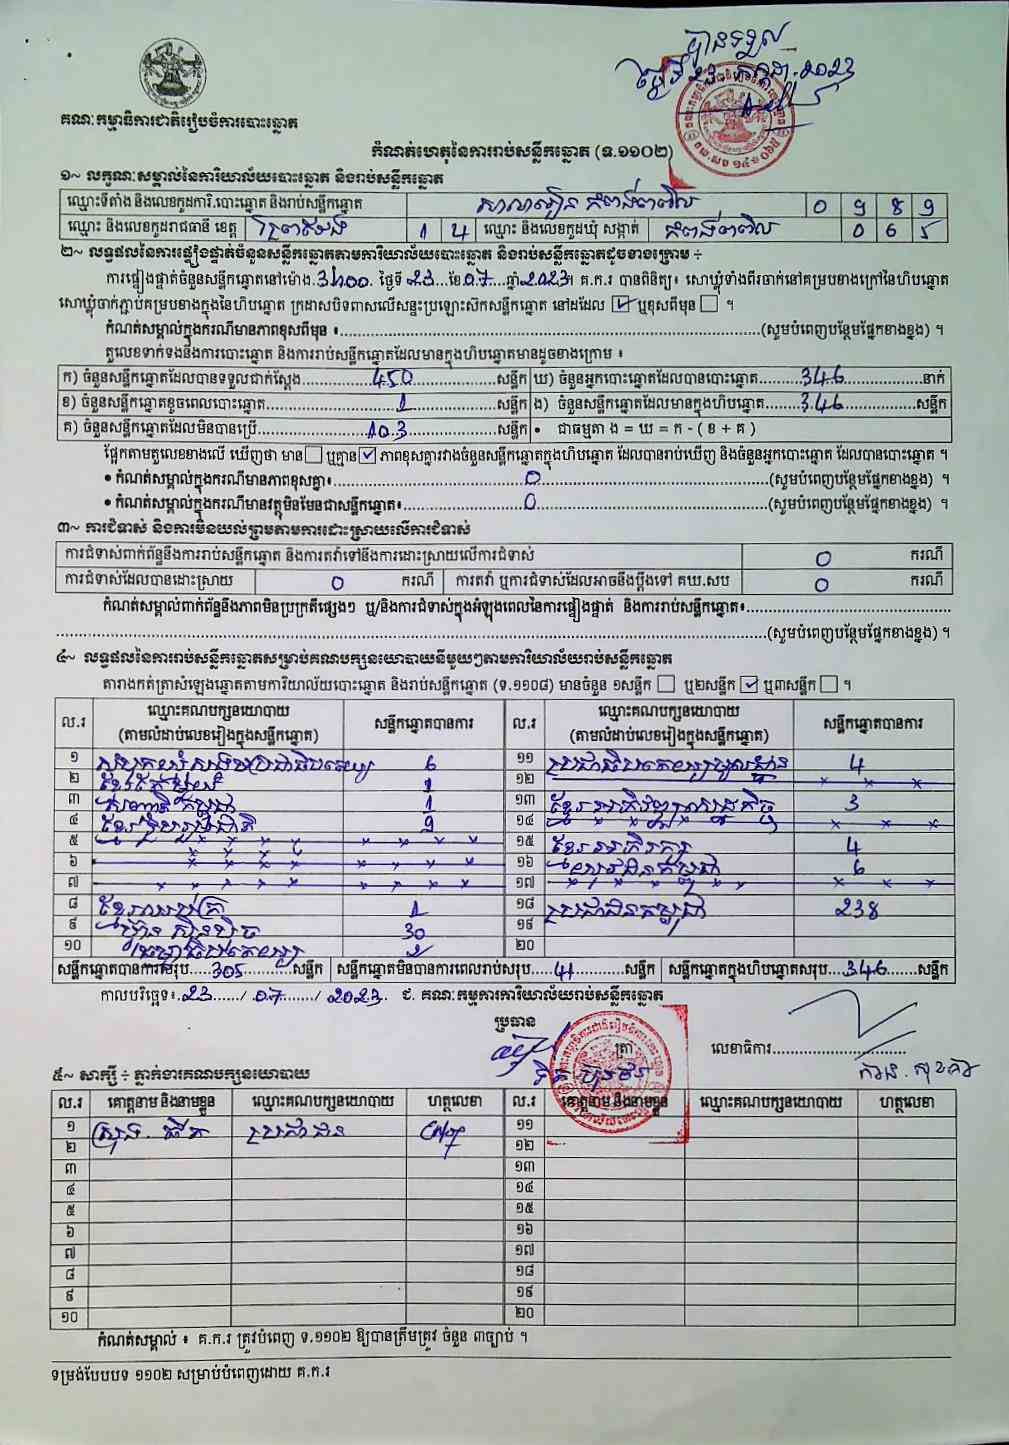 បានទទួល
ថ្ងៃទី ២៣ កក្កដា ២០២៣
គណៈកម្មាធិការជាតិរៀបចំការបោះឆ្នោត
កំណត់ហេតុនៃការរាប់សន្លឹកឆ្នោត (ទ.១១០២)
១~ លក្ខណៈសម្គាល់នៃការិយាល័យបោះឆ្នោត និងរាប់សន្លឹកឆ្នោត
ឈ្មោះទីតាំង និងលេខកូដការិ.បោះឆ្នោត និងរាប់សន្លឹកឆ្នោត 0 9 8 9
ឈ្មោះ និងលេខកូដរាជធានី ខេត្ត 1 4 ឈ្មោះ និងលេខកូដឃុំ សង្កាត់ 0 6 5
២~ លទ្ធផលនៃការផ្ទៀងផ្ទាត់ចំនួនសន្លឹកឆ្នោតតាមការិយាល័យបោះឆ្នោត និងរាប់សន្លឹកឆ្នោតដូចខាងក្រោម ÷
ការផ្ទៀងផ្ទាត់ចំនួនសន្លឹកឆ្នោតនៅម៉ោង 3h00 ថ្ងៃទី 23 ខែ 07 ឆ្នាំ 2023។ គ.ក.រ បានពិនិត្យ៖ សោឃ្លុំទាំងពីរចាក់នៅគម្របខាងក្រៅនៃហិបឆ្នោត
សោឃ្លុំចាក់ភ្ជាប់គម្របខាងក្នុងនៃហិបឆ្នោត ក្រដាសបិទពាសលើសន្ទះប្រឡោះស៊កសន្លឹកឆ្នោត នៅដដែល ☑ ឬខុសពីមុន ☐ ។
កំណត់សម្គាល់ក្នុងករណីមានភាពខុសពីមុន ៖ (សូមបំពេញបន្ថែមផ្នែកខាងខ្នង) ។
តួលេខទាក់ទងនឹងការបោះឆ្នោត និងការរាប់សន្លឹកឆ្នោតដែលមានក្នុងហិបឆ្នោតមានដូចខាងក្រោម ៖
ក) ចំនួនសន្លឹកឆ្នោតដែលបានទទួលជាក់ស្តែង 450 សន្លឹក ឃ) ចំនួនអ្នកបោះឆ្នោតដែលបានបោះឆ្នោត 346 នាក់
ខ) ចំនួនសន្លឹកឆ្នោតខូចពេលបោះឆ្នោត 1 សន្លឹក ង) ចំនួនសន្លឹកឆ្នោតដែលមានក្នុងហិបឆ្នោត 346 សន្លឹក
គ) ចំនួនសន្លឹកឆ្នោតដែលមិនបានប្រើ 103 សន្លឹក • ជាធម្មតា ង = ឃ = ក - ( ខ + គ )
ផ្អែកតាមតួលេខខាងលើ ឃើញថា មាន ☐ ឬគ្មាន ☑ ភាពខុសគ្នារវាងចំនួនសន្លឹកឆ្នោតក្នុងហិបឆ្នោត ដែលបានរាប់ឃើញ និងចំនួនអ្នកបោះឆ្នោត ដែលបានបោះឆ្នោត ។
• កំណត់សម្គាល់ក្នុងករណីមានភាពខុសគ្នា៖ 0 (សូមបំពេញបន្ថែមផ្នែកខាងខ្នង) ។
• កំណត់សម្គាល់ក្នុងករណីមានវត្ថុមិនមែនជាសន្លឹកឆ្នោត៖ 0 (សូមបំពេញបន្ថែមផ្នែកខាងខ្នង) ។
៣~ ការជំទាស់ និងការមិនយល់ព្រមតាមការដោះស្រាយលើការជំទាស់
ការជំទាស់ពាក់ព័ន្ធនឹងការរាប់សន្លឹកឆ្នោត និងការតវ៉ាទៅនឹងការដោះស្រាយលើការជំទាស់ 0 ករណី
ការជំទាស់ដែលបានដោះស្រាយ 0 ករណី ការតវ៉ា ឬការជំទាស់ដែលអាចនឹងប្តឹងទៅ គឃ.សប 0 ករណី
កំណត់សម្គាល់ពាក់ព័ន្ធនឹងភាពមិនប្រក្រតីផ្សេងៗ ឬ/និងការជំទាស់ក្នុងអំឡុងពេលនៃការផ្ទៀងផ្ទាត់ និងការរាប់សន្លឹកឆ្នោត៖
(សូមបំពេញបន្ថែមផ្នែកខាងខ្នង) ។
៤~ លទ្ធផលនៃការរាប់សន្លឹកឆ្នោតសម្រាប់គណបក្សនយោបាយនីមួយៗតាមការិយាល័យរាប់សន្លឹកឆ្នោត
តារាងកត់ត្រាសំឡេងឆ្នោតតាមការិយាល័យបោះឆ្នោត និងរាប់សន្លឹកឆ្នោត (ទ.១១០៨) មានចំនួន ១សន្លឹក ☐ ឬ២សន្លឹក ☑ ឬ៣សន្លឹក ☐ ។
ល.រ ឈ្មោះគណបក្សនយោបាយ (តាមលំដាប់លេខរៀងក្នុងសន្លឹកឆ្នោត) សន្លឹកឆ្នោតបានការ ល.រ ឈ្មោះគណបក្សនយោបាយ (តាមលំដាប់លេខរៀងក្នុងសន្លឹកឆ្នោត) សន្លឹកឆ្នោតបានការ
១ សំបុកឃ្មុំសង្គមប្រជាធិបតេយ្យ 6 ១១ 4
២ 1 ១២ × × ×
៣ 1 ១៣ ខ្មែរអភិវឌ្ឍន៍សេដ្ឋកិច្ច 3
៤ ខ្មែររួបរួមជាតិ 9 ១៤ × × ×
៥ × × × × ១៥ 4
៦ × × × × ១៦ យុវជនកម្ពុជា 6
៧ × × × × ១៧ × × ×
៨ ខ្មែរអភិរក្ស 1 ១៨ ប្រជាជនកម្ពុជា 238
៩ ហ៊្វុនស៊ិនប៉ិច 30 ១៩
១០ ២០
សន្លឹកឆ្នោតបានការសរុប 305 សន្លឹក សន្លឹកឆ្នោតមិនបានការពេលរាប់សរុប 41 សន្លឹក សន្លឹកឆ្នោតក្នុងហិបឆ្នោតសរុប 346 សន្លឹក
កាលបរិច្ឆេទ៖ 23 / 07 / 2023 ជ. គណៈកម្មការការិយាល័យរាប់សន្លឹកឆ្នោត
ប្រធាន
ត្រា លេខាធិការ
៥~ សាក្សី ÷ ភ្នាក់ងារគណបក្សនយោបាយ
ល.រ គោត្តនាម និងនាមខ្លួន ឈ្មោះគណបក្សនយោបាយ ហត្ថលេខា ល.រ គោត្តនាម និងនាមខ្លួន ឈ្មោះគណបក្សនយោបាយ ហត្ថលេខា
១ ប្រជាជន ១១
២ ១២
៣ ១៣
៤ ១៤
៥ ១៥
៦ ១៦
៧ ១៧
៨ ១៨
៩ ១៩
១០ ២០
កំណត់សម្គាល់ ៖ គ.ក.រ ត្រូវបំពេញ ទ.១១០២ ឱ្យបានត្រឹមត្រូវ ចំនួន ៣ច្បាប់ ។
ទម្រង់បែបបទ ១១០២ សម្រាប់បំពេញដោយ គ.ក.រ